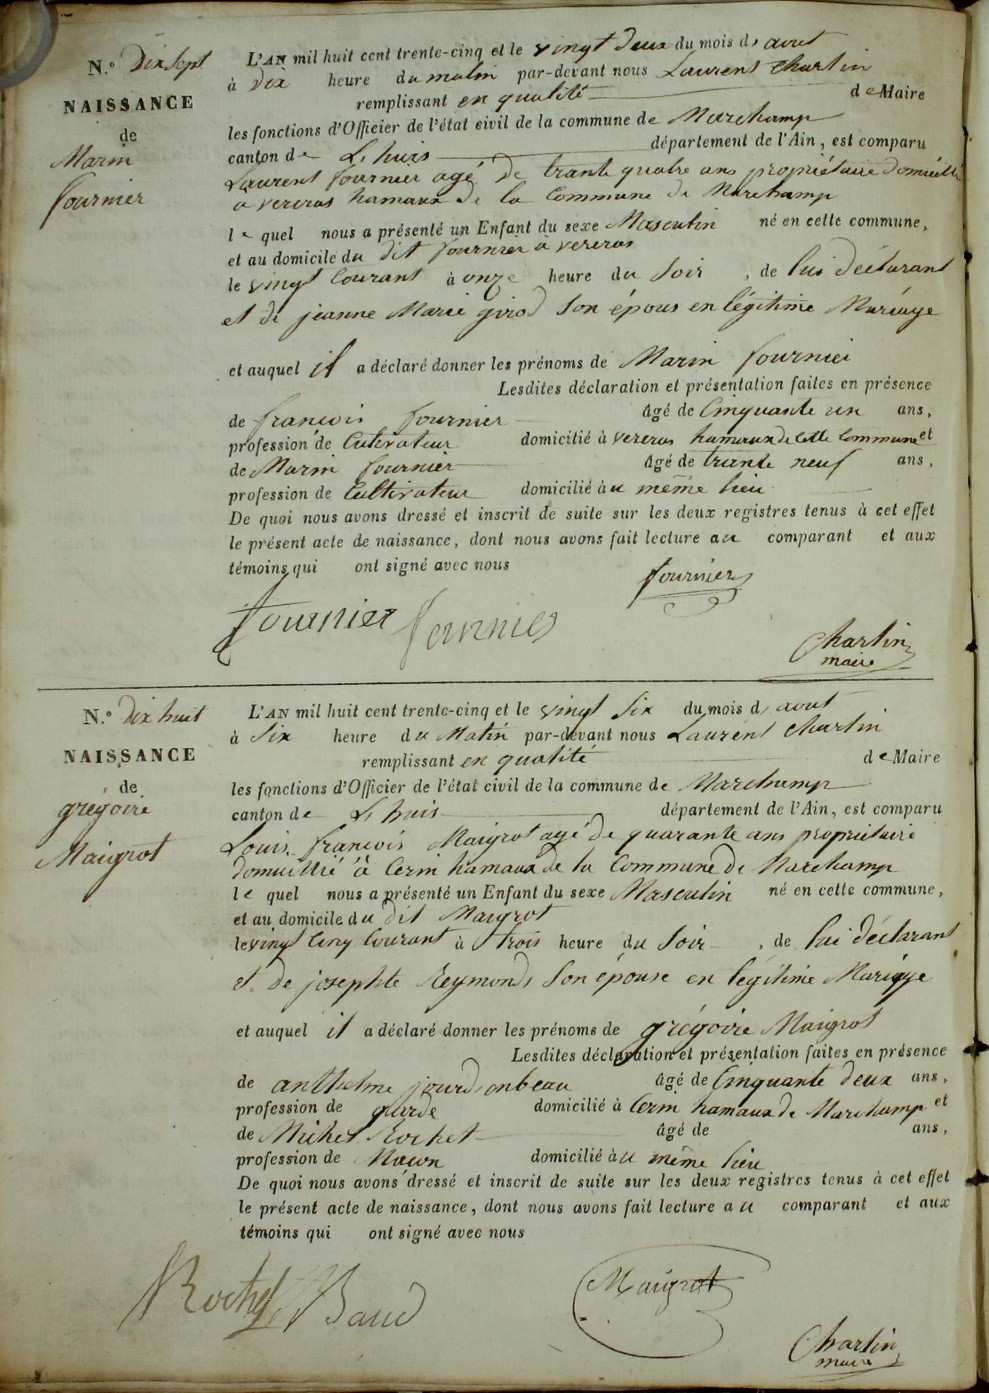 N.° Dix sept
NAISSANCE
de
Marin
fournier
L'AN mil huit cent trente-cinq et le vingt deux du mois d'aout
à dix heure du matin par-devant nous Laurent Charlin
remplissant en qualité de Maire
les fonctions d'Officier de l'état civil de la commune de Marchamp
canton de L'huis département de l'Ain, est comparu
Laurent fournier agé de trante quatre ans propriétaire domicillié
a vereras hamaux de la Commune de Marchamp
le quel nous a présenté un Enfant du sexe Masculin né en cette commune,
et au domicile du dit fournier à vereras
le vingt Courant à onze heure du Soir, de lui déclarant
et de jeanne Marie girod son épous en légitime Mariage
et auquel il a déclaré donner les prénoms de Marin fournier
Lesdites déclaration et présentation faites en présence
de françois fournier âgé de Cinquante un ans,
profession de Cutivateur domicilié à vereras hamaux de Cette Commune et
de Marin fournier âgé de trante neuf ans,
profession de Cultivateur domicilié au même lieu
De quoi nous avons dressé et inscrit de suite sur les deux registres tenus à cet effet
le présent acte de naissance, dont nous avons fait lecture au comparant et aux
témoins qui ont signé avec nous
fournier
fournier fournier
Charlin
maire
N.° dix huit
NAISSANCE
de
grégoire
Maigrot
L'AN mil huit cent trente-cinq et le vingt Six du mois d'aout
à Six heure du Matin par-devant nous Laurent Charlin
remplissant en qualité de Maire
les fonctions d'Officier de l'état civil de la commune de Marchamp
canton de L'huis département de l'Ain, est comparu
Louis françois Maigrot agé de quarante ans propriétaire
domicillié à Cerin hamaux de la Commune de Marchamp
le quel nous a présenté un Enfant du sexe Masculin né en cette commune,
et au domicile du dit Maigrot
le vingt Cinq Courant à trois heure du Soir, de lui déclarant
et de josephte Reymond son épouse en légitime Mariage
et auquel il a déclaré donner les prénoms de grégoire Maigrot
Lesdites déclaration et présentation faites en présence
de anthelme âgé de Cinquante deux ans,
profession de garde domicilié à Cerin hamaux de Marchamp et
de Michel Rochet âgé de ans,
profession de Macon domicilié au même lieu
De quoi nous avons dressé et inscrit de suite sur les deux registres tenus à cet effet
le présent acte de naissance, dont nous avons fait lecture au comparant et aux
témoins qui ont signé avec nous
Rochet Maigrot
Charlin
maire